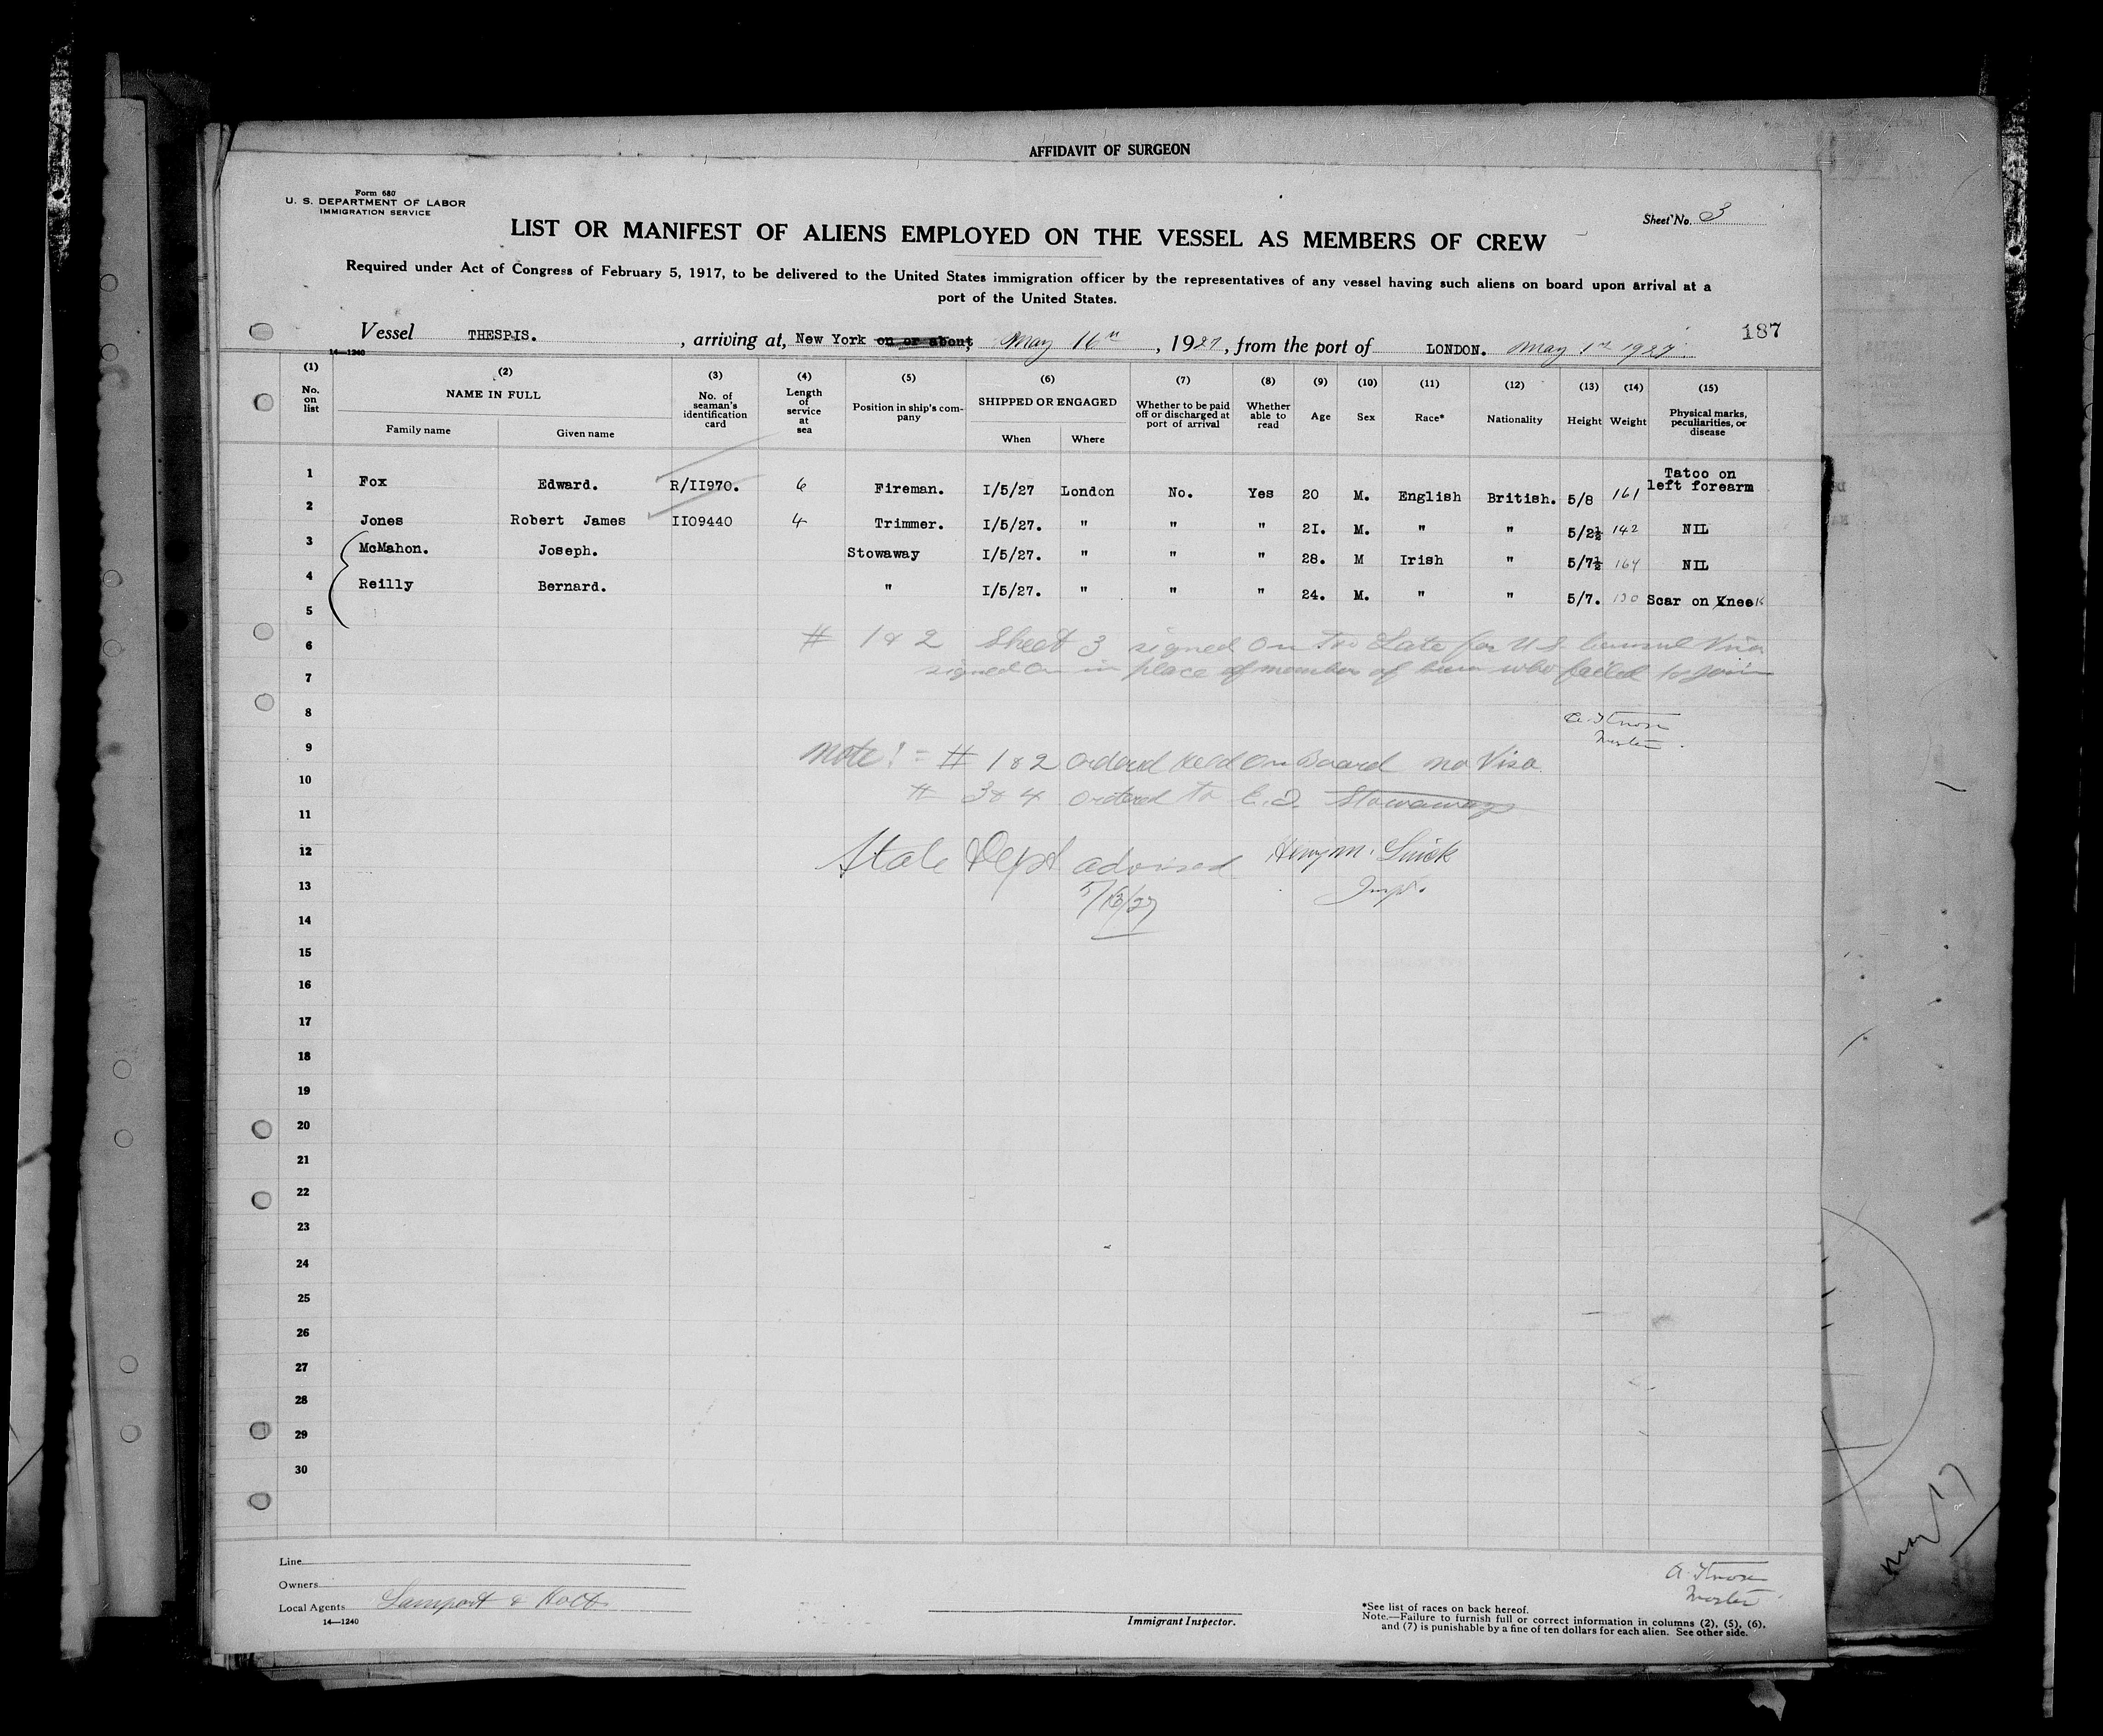 AFFIDAVIT OF SURGEON
Form 680
U. S. DEPARTMENT OF LABOR
IMMIGRATION SERVICE
Sheet No. 3
LIST OR MANIFEST OF ALIENS EMPLOYED ON THE VESSEL AS MEMBERS OF CREW
Required under Act of Congress of February 5, 1917, to be delivered to the United States immigration officer by the representatives of any vessel having such aliens on board upon arrival at a
port of the United States.
187
Vessel THESPIS. , arriving at, New York on or about, May 16th , 1927, from the port of LONDON. May 1st 1927.
14—1240
(1) (2) (3) (4) (5) (6) (7) (8) (9) (10) (11) (12) (13) (14) (15)
No. on list NAME IN FULL No. of seaman's identification card Length of service at sea Position in ship's company SHIPPED OR ENGAGED Whether to be paid off or discharged at port of arrival Whether able to read Age Sex Race* Nationality Height Weight Physical marks, peculiarities, or disease
Family name Given name When Where
1 Fox Edward. R/II970. 6 Fireman. I/5/27 London No. Yes 20 M. English British. 5/8 161 Tatoo on left forearm
2 Jones Robert James II09440 4 Trimmer. I/5/27. " " " 2I. M. " " 5/2½ 142 NIL
3 McMahon. Joseph. Stowaway I/5/27. " " " 28. M Irish " 5/7½ 164 NIL
4 Reilly Bernard. " I/5/27. " " " 24. M. " " 5/7. 130 Scar on Knee
5
6 # 1 & 2 Sheet 3 signed on Too Late for U.S. Consul Visa
7 signed on in place of member of crew who failed to join
8
Master
9 Note! = # 1 & 2 ordered held on Board no Visa
10 # 3 & 4 ordered to Stowaways
11
12 State Dept advised
13 Insp.
5/16/27
14
15
16
17
18
19
20
21
22
23
24
25
26
27
28
29
30
Line
Owners
Local Agents Lamport & Holt
14—1240
Immigrant Inspector.
Master
*See list of races on back hereof.
Note.—Failure to furnish full or correct information in columns (2), (5), (6),
and (7) is punishable by a fine of ten dollars for each alien. See other side.
May 17